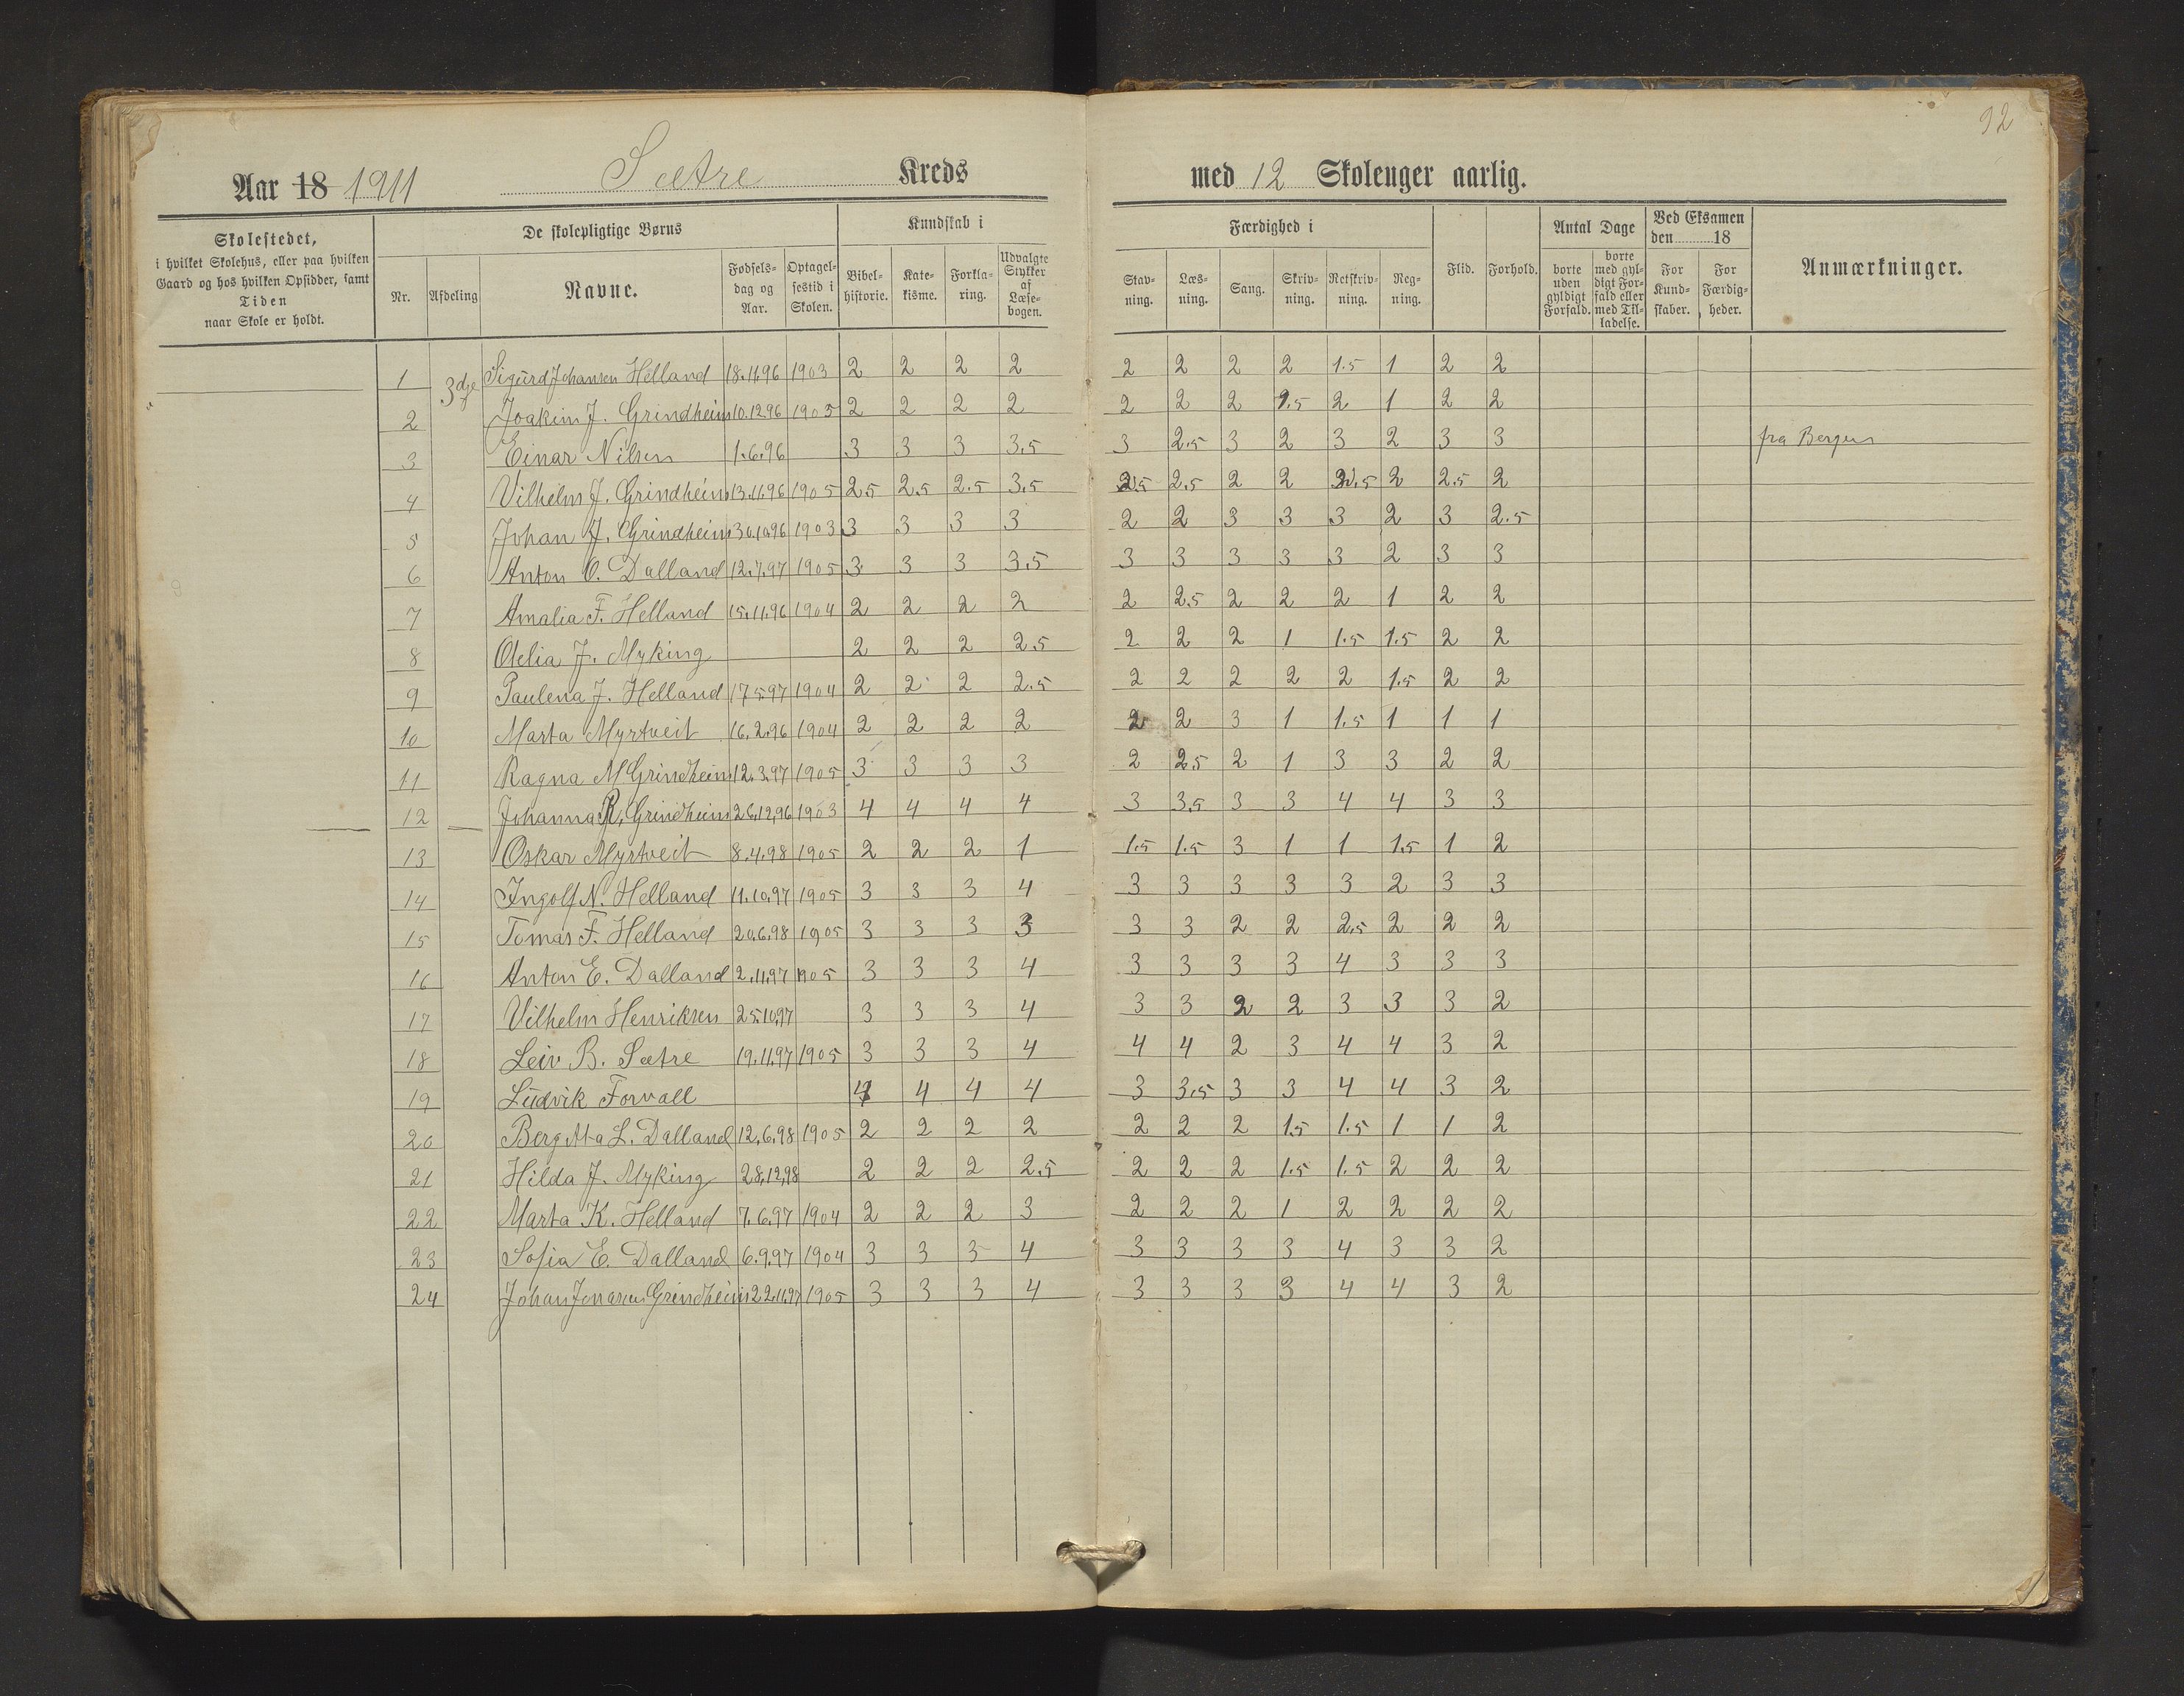 92
Aar 18 1911 Sætre Kreds med 12 Skoleuger aarlig.
Skolestedet, i hvilket Skolehus, eller paa hvilken Gaard og hos hvilken Opsidder, samt Tiden naar Skole er holdt.
De skolepligtige Børns
Nr. Afdeling Navne. Fødselsdag og Aar. Optagelsestid i Skolen.
Kundskab i
Bibelhistorie. Katekisme. Forklaring. Udvalgte Stykker af Læsebogen.
Færdighed i
Stavning. Læsning. Sang. Skrivning. Retskrivning. Regning.
Flid. Forhold.
Antal Dage
borte uden gyldigt Forfald. borte med gyldigt Forfald eller med Tilladelse.
Ved Eksamen den 18
For Kundskaber. For Færdigheder.
Anmærkninger.
1 3dje Sigurd Johansen Helland 18.11.96 1903 2 2 2 2 2 2 2 2 1.5 1 2 2
2 Joakim J. Grindheim 10.12.96 1905 2 2 2 2 2 2 2 1.5 2 1 2 2
3 Einar Nilsen 1.6.96 3 3 3 3.5 3 2.5 3 2 3 2 3 3 fra Bergen
4 Vilhelm J. Grindheim 13.11.96 1905 2.5 2.5 2.5 3.5 2.5 2.5 2 2 2.5 2 2.5 2
5 Johan J. Grindheim 30.10.96 1903 3 3 3 3 2 2 3 3 3 2 3 2.5
6 Anton O. Dalland 12.7.97 1905 3 3 3 3.5 3 3 3 3 3 2 3 3
7 Amalia F. Helland 15.11.96 1904 2 2 2 2 2 2.5 2 2 2 1 2 2
8 Olelia J. Myking 2 2 2 2.5 2 2 2 1 1.5 1.5 2 2
9 Paulena J. Helland 17.5.97 1904 2 2 2 2.5 2 2 2 2 2 1.5 2 2
10 Marta Myrtveit 16.2.96 1904 2 2 2 2 2 2 3 1 1.5 1 1 1
11 Ragna M Grindheim 12.3.97 1905 3 3 3 3 2 2.5 2 1 3 3 2 2
12 Johanna R. Grindheim 26.12.96 1903 4 4 4 4 3 3.5 3 3 4 4 3 3
13 Oskar Myrtveit 8.4.98 1905 2 2 2 1 1.5 1.5 3 1 1 1.5 1 2
14 Ingolf N. Helland 11.10.97 1905 3 3 3 4 3 3 3 3 3 2 3 3
15 Tomas F. Helland 20.6.98 1905 3 3 3 3 3 3 2 2 2.5 2 2 2
16 Anton E. Dalland 2.11.97 1905 3 3 3 4 3 3 3 3 4 3 3 3
17 Vilhelm Henriksen 25.10.97 3 3 3 4 3 3 2 2 3 3 3 2
18 Leiv B. Sætre 19.11.97 1905 3 3 3 4 4 4 2 3 4 4 3 2
19 Ludvik Forvall 4 4 4 4 3 3.5 3 3 4 4 3 2
20 Bergitta L. Dalland 12.6.98 1905 2 2 2 2 2 2 2 1.5 1.5 1 1 2
21 Hilda J. Myking 28.12.98 2 2 2 2.5 2 2 2 1.5 1.5 2 2 2
22 Marta K. Helland 7.6.97 1904 2 2 2 3 2 2 2 1 2 2 2 2
23 Sofia E. Dalland 6.9.97 1904 3 3 3 4 3 3 3 3 4 3 3 2
24 Johan Jonassen Grindheim 22.11.97 1905 3 3 3 4 3 3 3 3 4 4 3 2